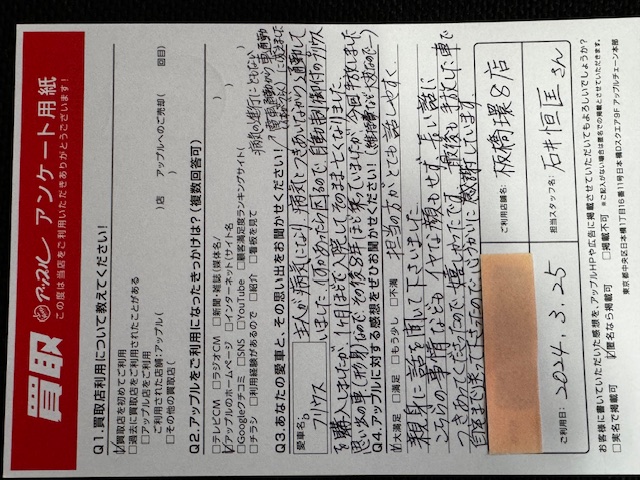 買取 アップル アンケート用紙
この度は当店をご利用いただきありがとうございます!
Q1.買取店利用について教えてください!
☑買取店を初めてご利用
□過去に買取店をご利用されたことがある
□アップル店をご利用
ご利用された店舗:アップル( 店 アップルへのご売却( 回目)
□その他の買取店( )
Q2.アップルをご利用になったきっかけは?(複数回答可)
□テレビCM □ラジオCM □新聞・雑誌(媒体名/ )
☑アップルのホームページ □インターネット(サイト名 )
□Googleクチコミ □SNS □YouTube □顧客満足度ランキングサイト
□チラシ □利用経験があるので □紹介 □看板を見て
Q3.あなたの愛車と、その思い出をお聞かせください!
病気の進行にともない
愛車名:
プリウス
主人が病気になり、病気とつきあいながら、通勤して
いました。何かあったら困るので、自動制御付のプリウス
を購入しましたが、1ヶ月ほどで入院してそのまま亡くなりました。
思い出の車(形見)なので、その後8年ほど乗っていましたが、今回手放しました
Q4.アップルに対する感想をぜひお聞かせください!
(維持費など大変なので)
☑大満足 □満足 □もう少し □不満
担当の方がとても話しやすく、
親身に話を聞いて下さいました。
こちらの事情なども イヤな顔もせず、長い話に
つきあってくださったので 嬉しかったです。最後に手放した車で
自宅まで送って下さったので 心から感謝しています。
ご利用店舗名: 板橋環8店
ご利用日: 2024.3.25
担当スタッフ名: 石井恒匡さん
お客様に書いていただいた感想を、アップルHPや広告に掲載させていただいてもよろしいでしょうか?
□実名で掲載可 ☑匿名なら掲載可 □掲載不可 ※ご記入がない場合は匿名での掲載とさせていただきます。
東京都中央区日本橋1丁目16番11号日本橋Dスクエア9F アップルチェーン本部